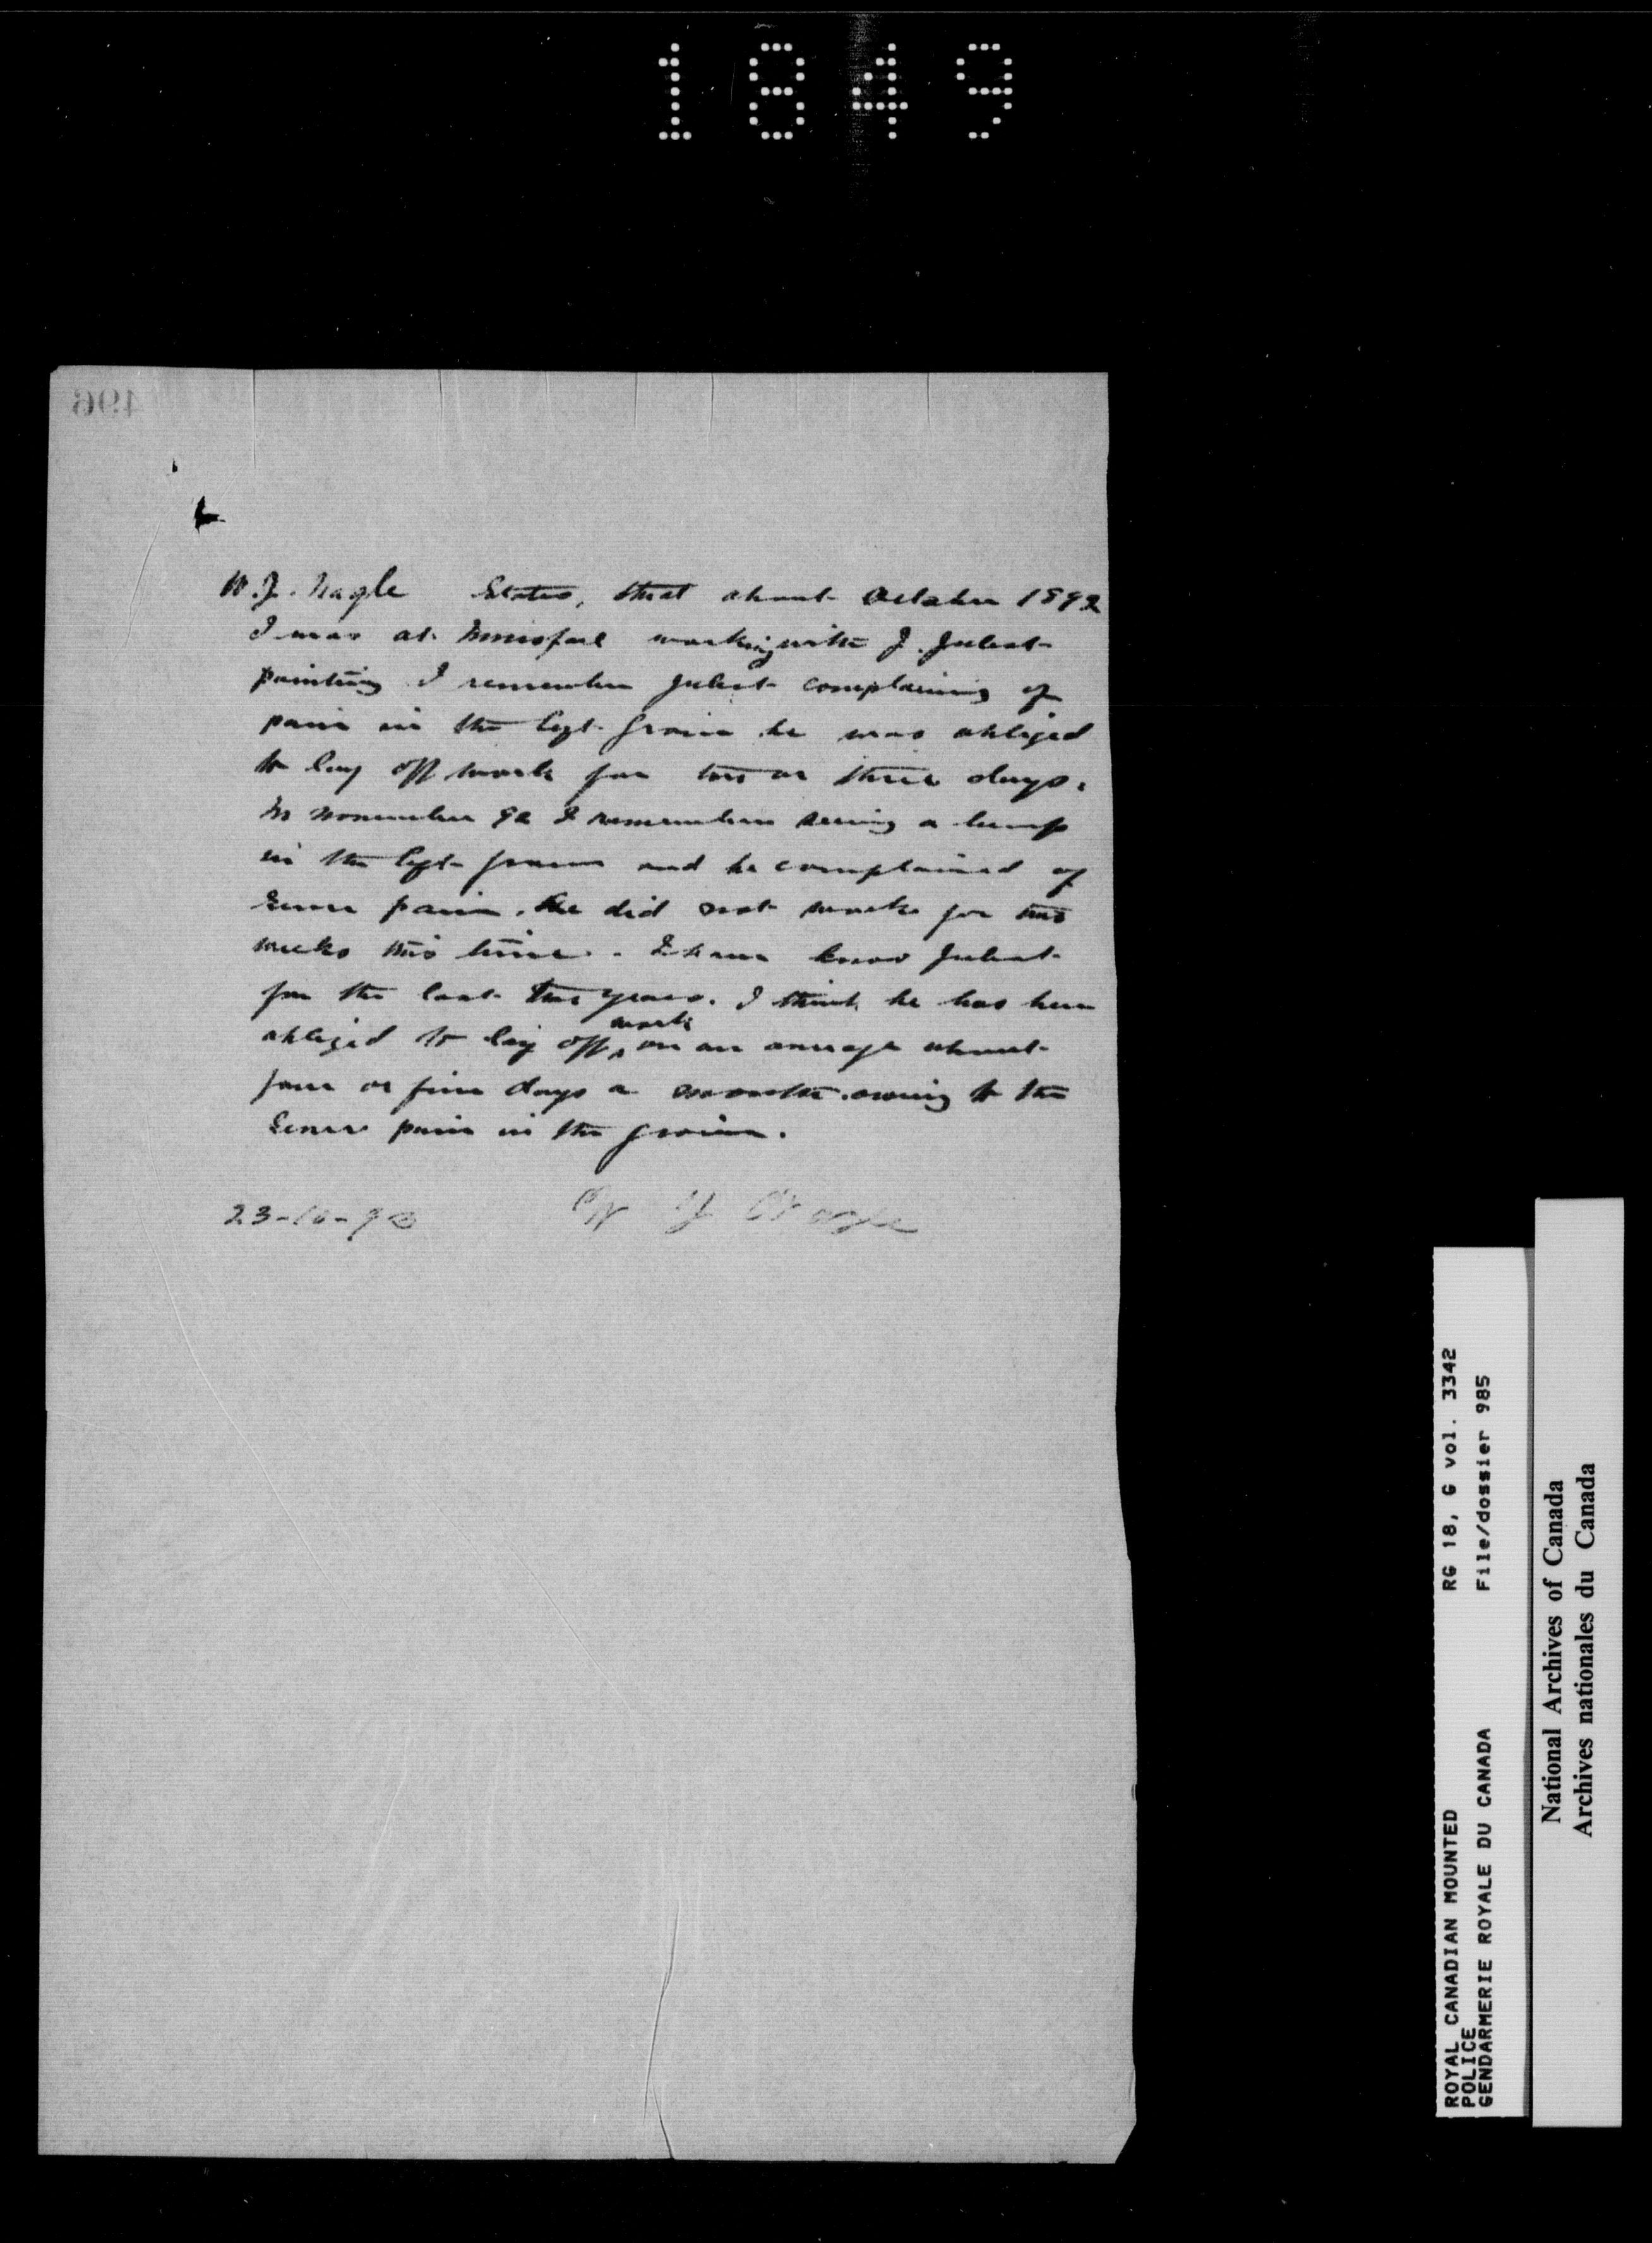 1849
496
W. J. Nagle States, that about October 1892
I was at Innisfail working with J. Julest
painting I remember Julest complaining of
pain in the left groin he was obliged
to lay off work for two or three days.
In November 92 I remember seeing a lump
in the left groin and he complained of
severe pain. He did not work for two
weeks this time. I have know Julest
for the last two years. I think he has been
obliged to lay off work on an average about
four or five days a month owing to the
severe pain in the groin.
23-10-93 W J Nagle
ROYAL CANADIAN MOUNTED RG 18, G vol. 3342
POLICE
GENDARMERIE ROYALE DU CANADA File/dossier 985
National Archives of Canada
Archives nationales du Canada